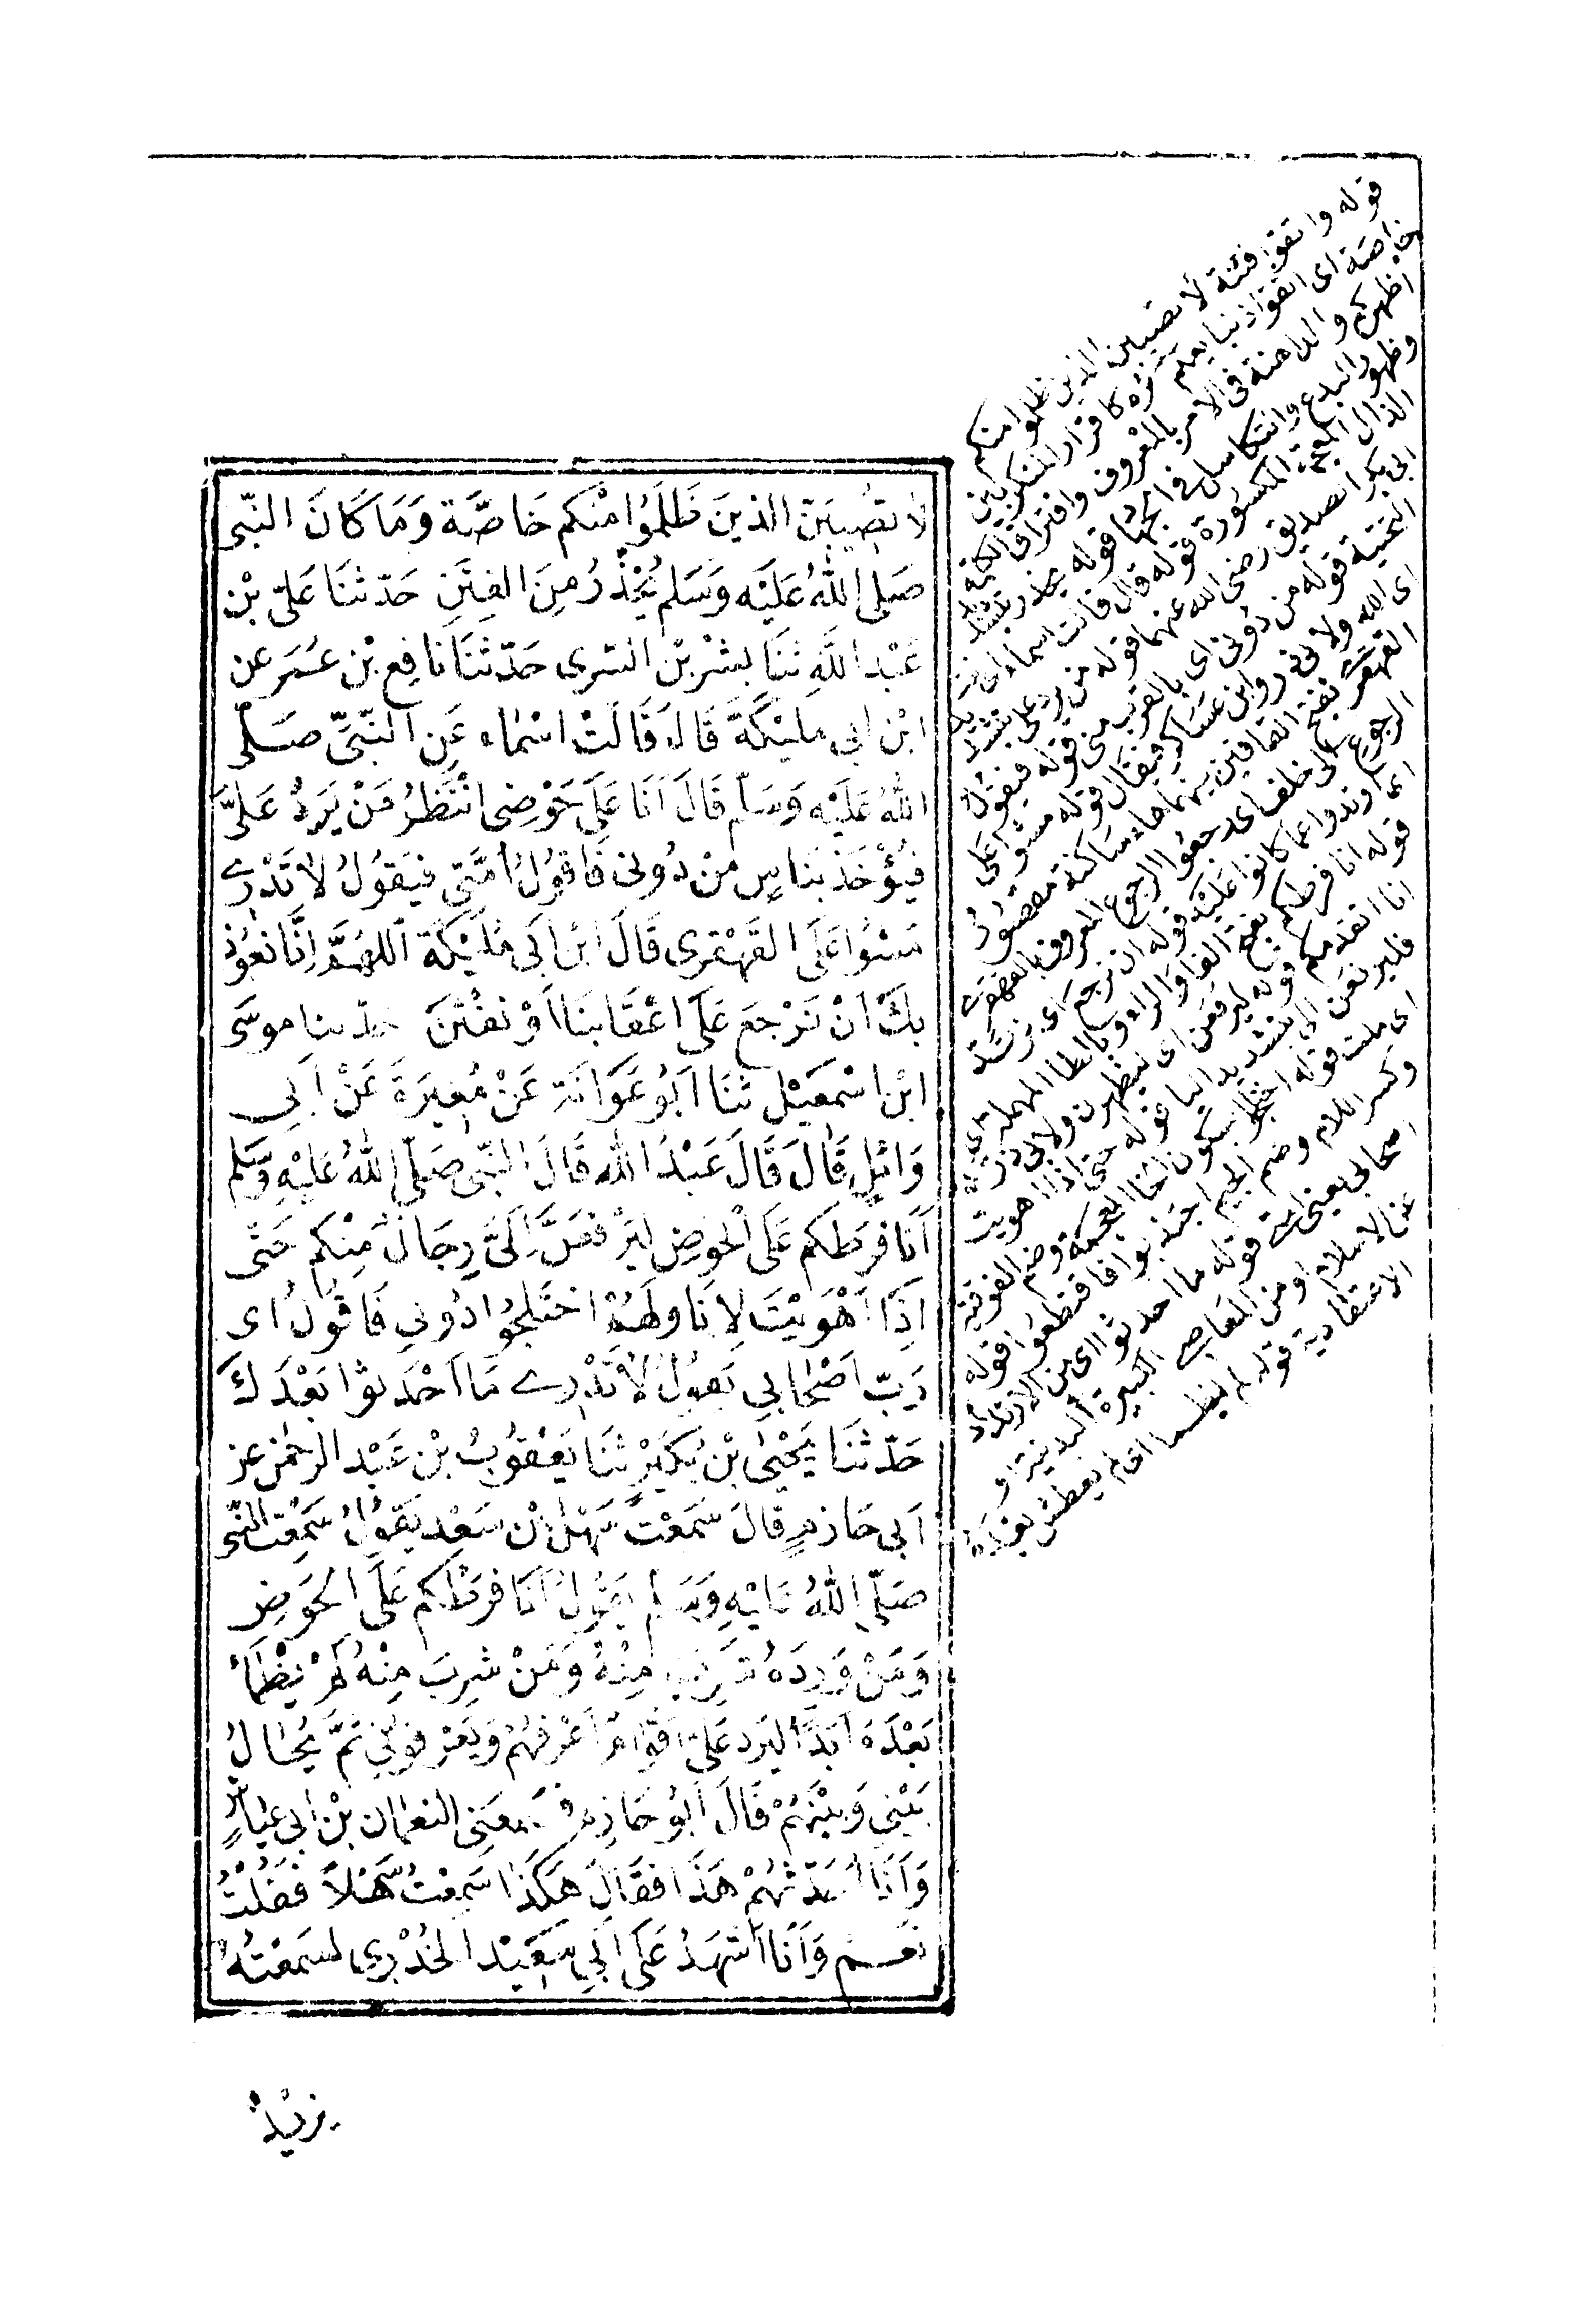 لَا تُصِيبَنَّ الذينَ ظَلَمُوا مِنْكم خَاصَّة وَمَا كَانَ النّبى
صَلى اللّٰهُ عَلَيْه وَسَلم يُحَذّرُ مِنَ الفِتَنِ حَدّثنَا عَلىّ بْن
عَبْد اللّٰهِ ثنَا بشْر بْن السّرى حَدّثنَا نَافِع بْن عُمَر عن
ابْن ابى مليْكَةَ قَالَ قَالَتْ اسْمَاء عَنِ النّبىّ صَلى
اللّٰهُ عَلَيْه وَسَلّم قَالَ اَنَا عَلَى حَوْضِى انْتَظِرُ مَنْ يَرِدُ عَلىَّ
فيُؤْخَذ بنَاسٍ مِنْ دُونى فَاقُولُ اُمَّتِى فيَقُولُ لاتَدْرِے
مَشَوْا عَلَى القَهْقرى قَالَ ابْن اَبى مُلَيْكَة اَللهُمَّ اِنَّا نَعُوذ
بكَ اَنْ نَرْجعَ عَلَى اعْقَابنَا اَوْ نفْتَنَ حدّثنا موسَى
ابْن اسْمعِيْل ثنَا اَبُو عَوَانَة عَنْ مُغِيرَةَ عَنْ اَبِى
وَائِلٍ قَالَ قَالَ عَبْدُ اللّٰه قَالَ النّبى صَلى اللّٰهُ عَلَيْهِ وَسَلم
اَنَا فرَطكم عَلَى الحوضِ ليُرْفعَنَّ اِلَىَّ رِجَالٌ مِنْكم حَتّى
اِذَا اَهْوَيْتَ لاِنَاولَهُمْ اخْتلِجُوا دُونِى فَاقُولُ اى
رَبّ اَصْحَابِى يَقولُ لَا تَدْرِے مَا اَحْدَثوا بَعْدَكَ
حَدّثنَا يَحْيٰى بْن بُكَيْرٍ ثنَا يَعْقوُبُ بْن عَبْد الرحْمٰن عن
اَبى حَازمٍ قالَ سَمعْتُ سَهْلَ بْن سَعْدٍ يَقُولُ سَمِعْت النّبى
صَلّى اللّٰهُ عَليْهِ وَسَلم يَقُولُ اَنَا فرَطكم عَلَى الحَوضِ
وَمَنْ وَرَدَهُ شَرِبَ مِنْهُ وَمَنْ شرِبَ مِنْهُ لَمْ يَظْمَأْ
بَعْدَهُ اَبَدًا ليَرِد عَلىّ اَقوَامٌ اَعْرفهُمْ وَيَعْرِفونِى ثمَّ يُحَالُ
بَيْنِى وَبيْنَهُمْ قَالَ اَبُو حَازِمٍ فسَمعَنِى النعْمَان بْن ابى عيَّاشٍ
وَاَنَا اُحَدّثهُمْ هَذَا فقَالَ هَكَذَا سَمِعْتُ سَهْلاً فقُلْتُ
نَعَمْ وَاَنَا اَشْهَدُ عَلَى اَبِى سَعِيْد الخُدْرِى لسَمعْتُهُ
قوله واتقوا فتنة لا تصيبن الذين ظلموا منكم
خاصة اى اتقوا ذنبا يعمكم اثره كاقرار المنكر بين
اظهركم والمداهنة فى الامر بالمعروف وافتراق الكلمة
وظهور البدع والتكاسل فى الجهاد قوله يحذر بتشديد
الذال المعجمة المكسورة قوله قال قالت اسماء اى بنت
ابى بكر الصديق رضى الله عنهما قوله من يرد على بتشديد
التحتية قوله من دونى اى بالقرب منى قوله فيقول
اى الله ولابى ذر وابن عساكر فيقال قوله مشوا على
القهقرى بفتح القافين بينهما هاء ساكنة مقصور
الرجوع الى خلف اى رجعوا الرجوع المعروف بالقهقرى
اى ارتدوا عما كانوا عليه قوله ان نرجع اى نرتد
قوله انا فرطكم بفتح الفا والراء وبالطا المهملة اى
انا اتقدمكم قوله ليرفعن اى ليظهرن ولابى ذر
فليرفعن الى بتشديد اليا قوله حتى اذا اهويت
اى ملت قوله اختلجوا بسكون الخا المعجمة وضم الفوقية
وكسر اللام وضم الجيم اجتذبوا فاقتطعوا قوله
اصحابى يعنى امتى قوله ما احدثوا اى من الارتداد
عن الاسلام او من المعاصى الكبيرة البدنية او
الاعتقادية قوله لم يظما اى لم يعطش بعده
يزيْدُ